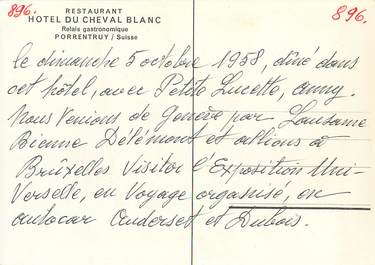 896.
RESTAURANT
HOTEL DU CHEVAL BLANC
Relais gastronomique
PORRENTRUY / Suisse
896.
le dimanche 5 octobre 1958, dîné dans
cet hôtel, avec Petite Lucette, Anny.
Nous venions de Genève par Lausanne
Bienne Délémont et allions à
Brûxelles Visiter l'Exposition Uni-
Verselle, en Voyage organisé, en
autocar Anderset et Dubois.